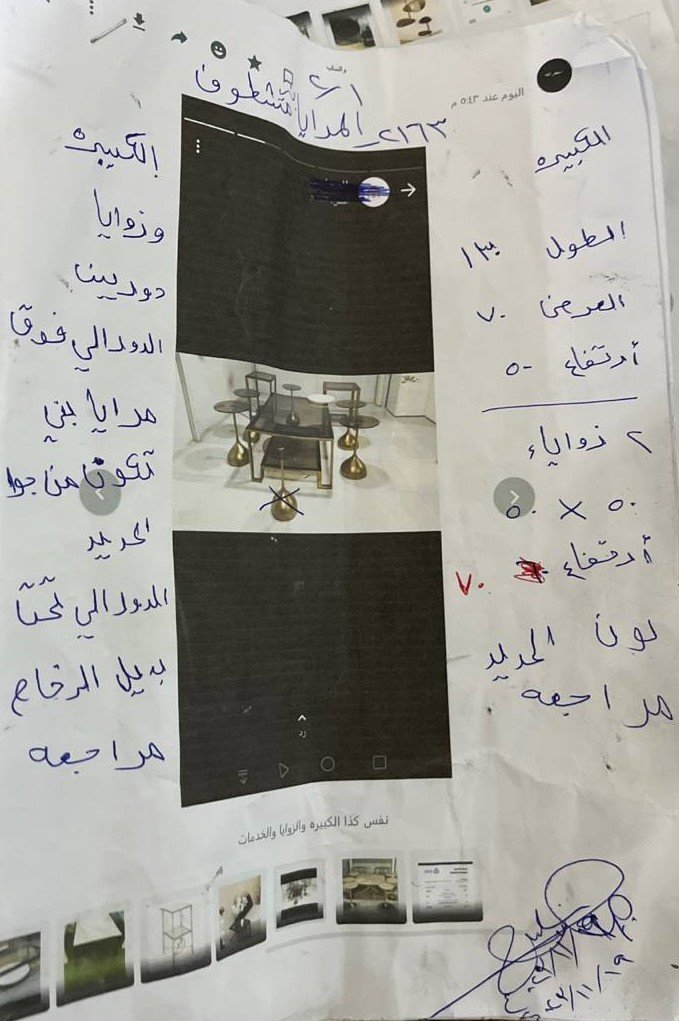 اليوم عند ٥:٤٣ م
٢/١
٢١٦٣ـ المرايا مشطوف
الكبيره
الطول ١٣٠
العرض ٧٠
أرتفاع ٥٠
٢ زوايا
٥٠ X ٥٠
أرتفاع ٧٠
لون الحديد
مراجعه
الكبيره
وزوايا
دورين
الدور الي فوق
مرايا بني
تكون من جوا
الحديد
الدور الي تحت
بديل الرخام
مراجعه
رد
نفس كذا الكبيره والزوايا والخدمات